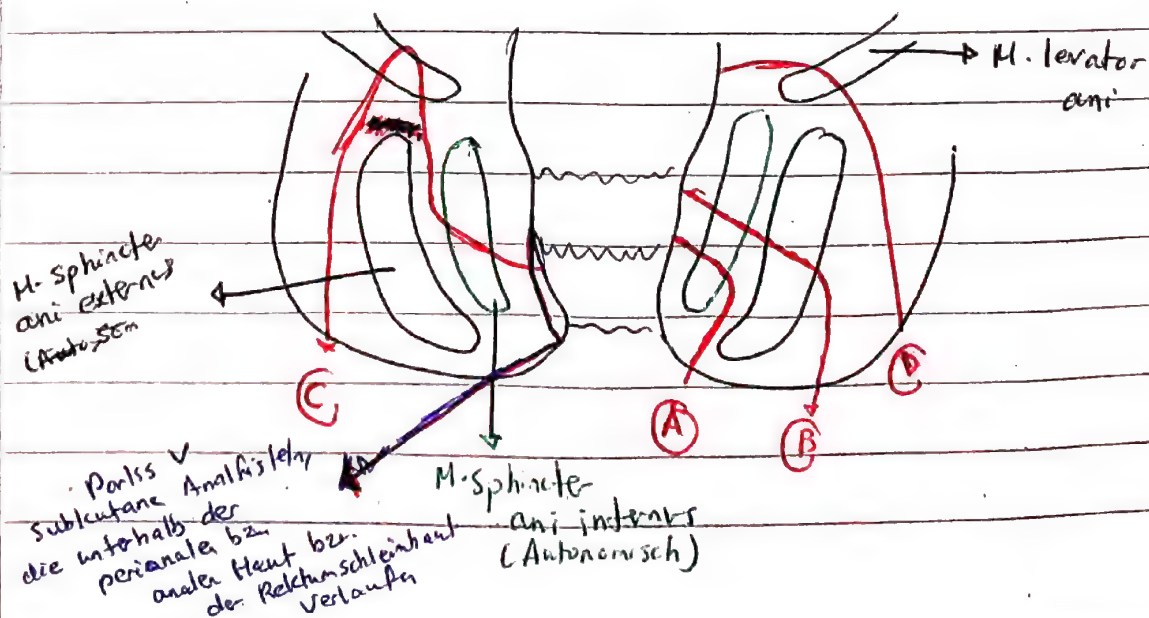 M. levator
ani
M. Sphincter
ani externus
C
A
B
D
Parks V
subkutane Analfisteln,
die unterhalb der
perianalen bzw.
analen Haut bzw.
der Rektumschleimhaut
verlaufen
M. Sphincter
ani internus
(Autonomisch)